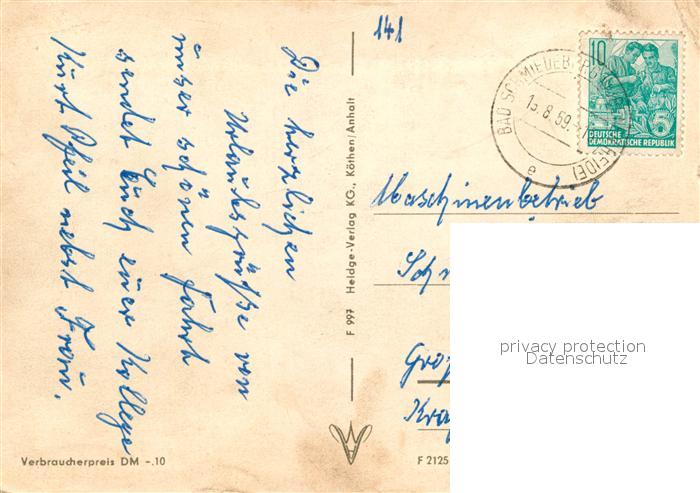 Die herzlichen
Urlaubsgrüße von
unser schönen Fahrt
sendet Euch euer Kollege
Kurt Pfeil nebst Frau.
Verbraucherpreis DM -.10
F 997 Heldge-Verlag KG., Köthen/Anhalt
141
10
5
DEUTSCHE
DEMOKRATISCHE REPUBLIK
BAD SCHMIEDEBERG
HEIDE)
e
8.59.
Maschinenbetrieb
Sch
Gro
Kra
F 2125
privacy protection
Datenschutz